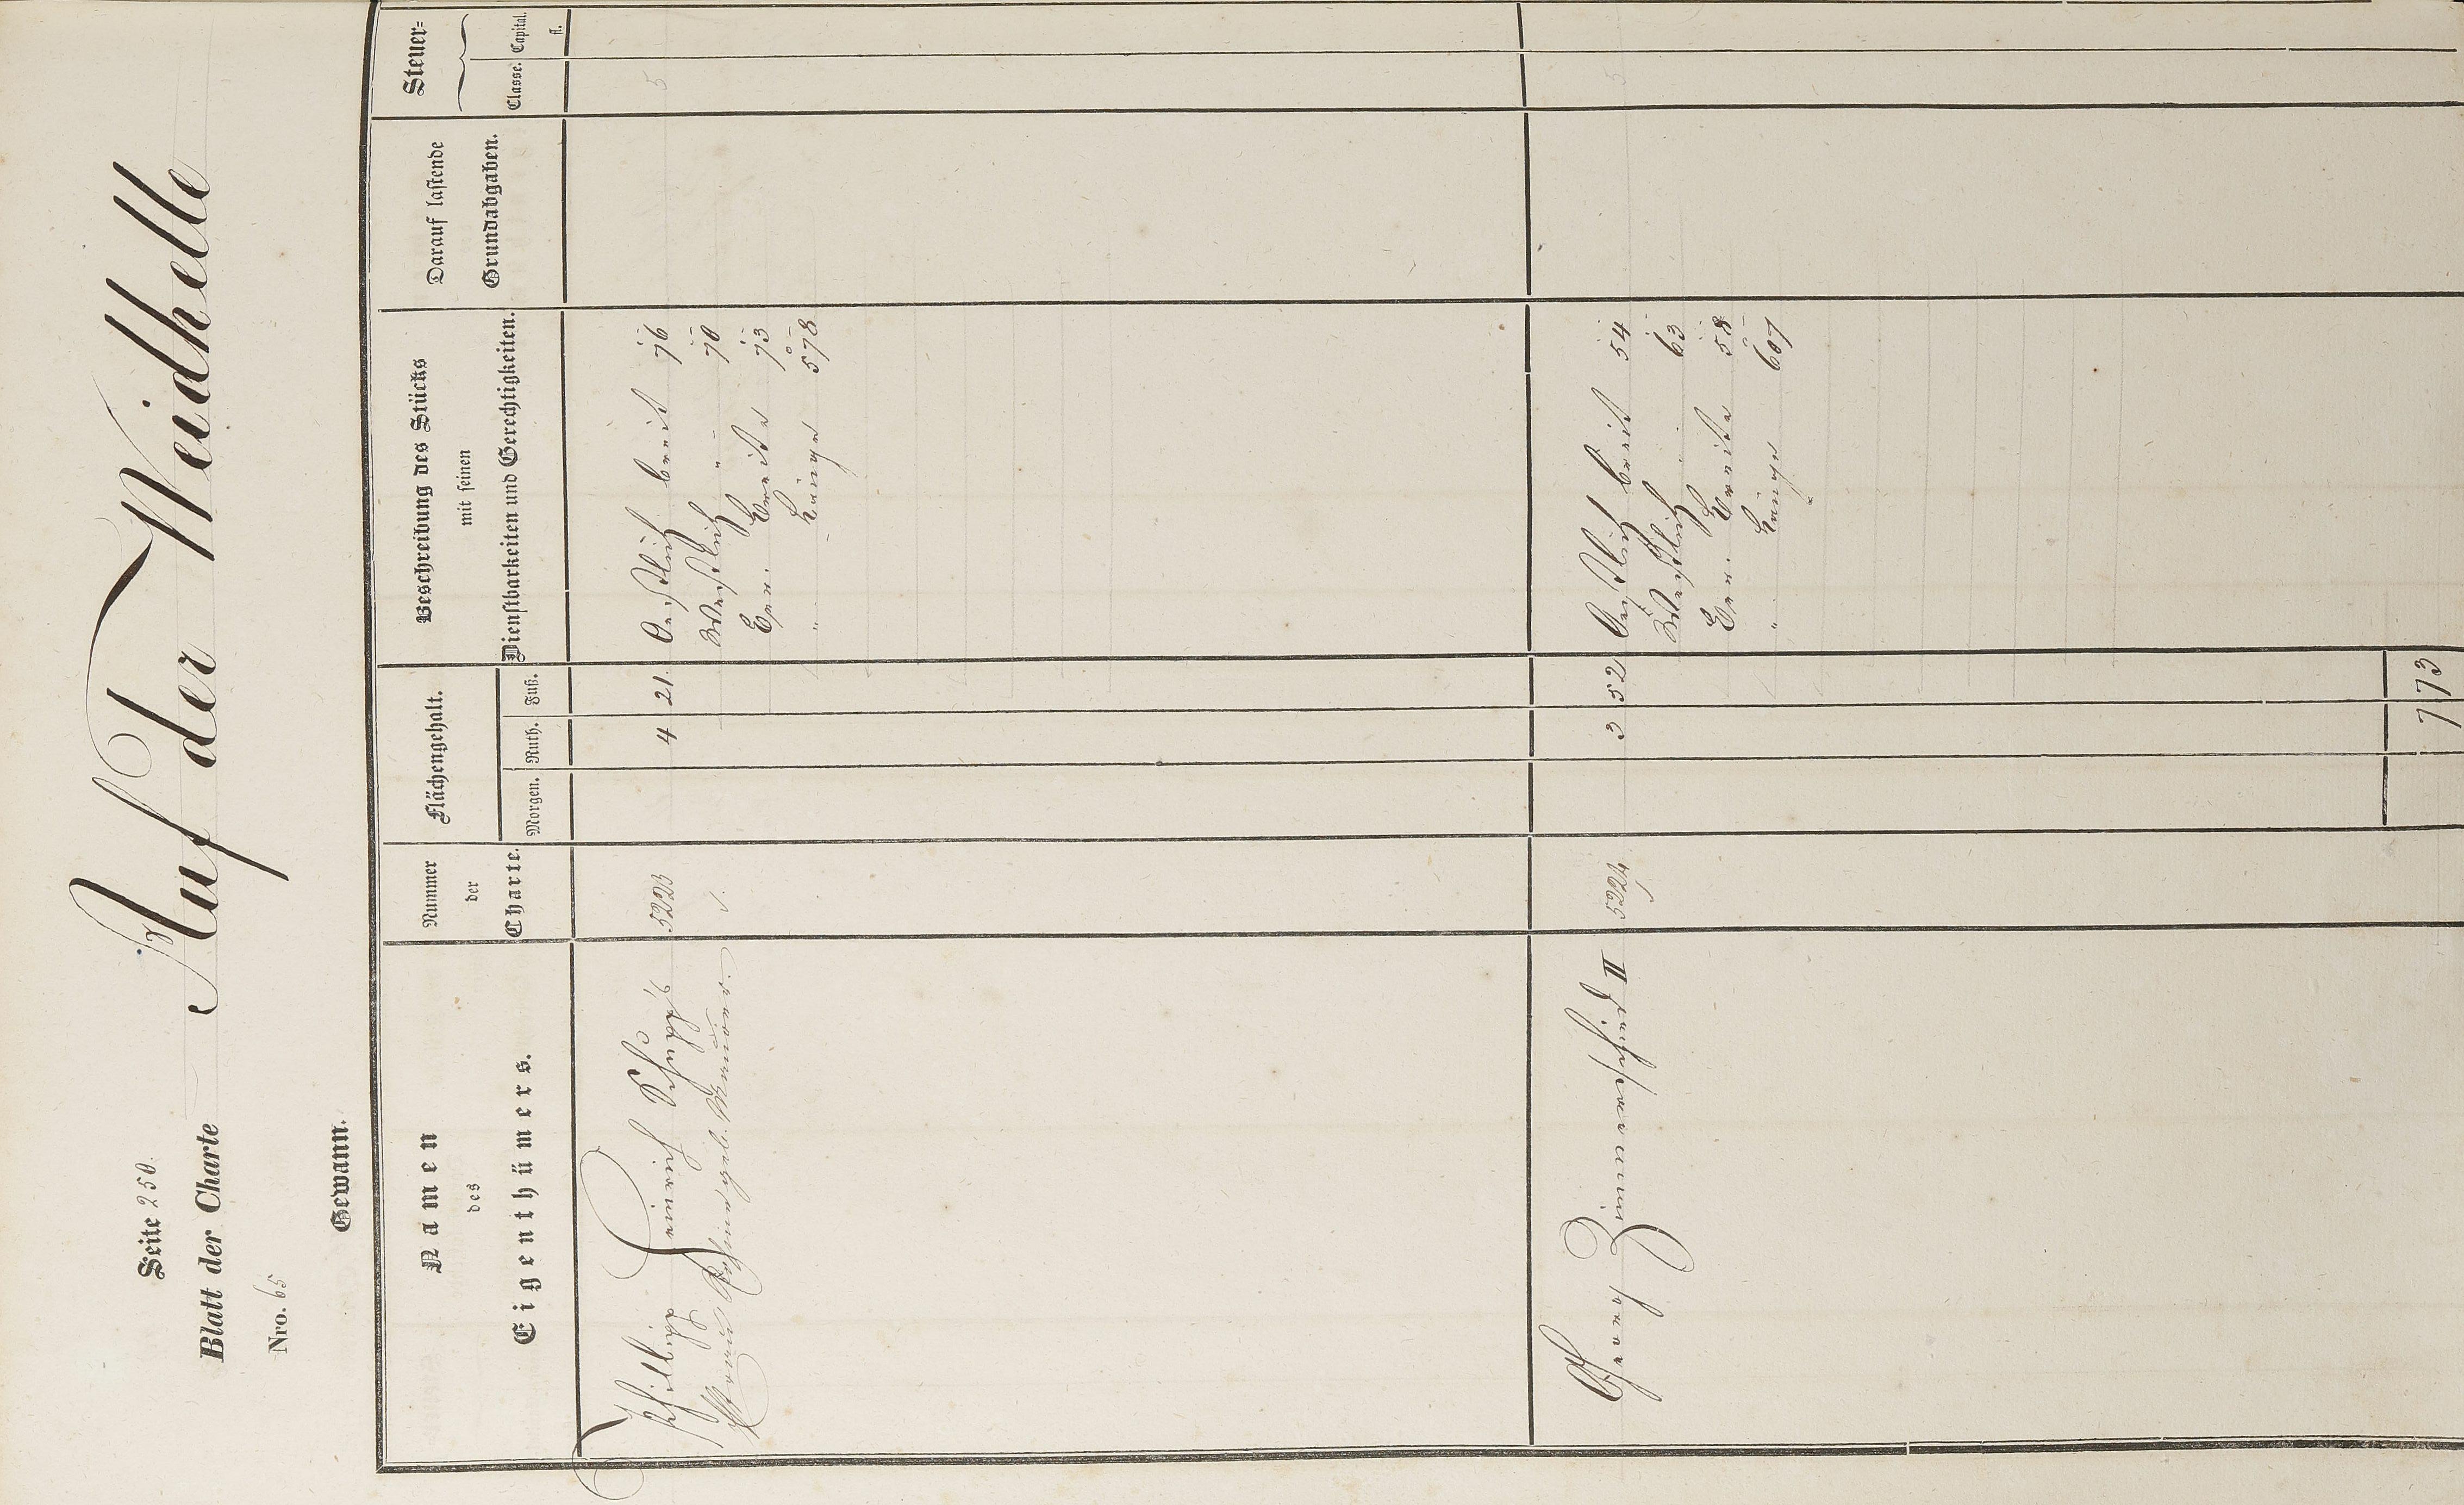 Seite 250.
Blatt der Charte
Nro. 65
Auf der Weidhelle
Gewann.
Namen
des
Eigenthümers.
Nummer
der
Charte.
Flächengehalt.
Morgen. Ruth. Fuß.
Beschreibung des Stücks
mit seinen
Dienstbarkeiten und Gerechtigkeiten.
Darauf lastende
Grundabgaben.
Steuer=
Classe. Capital.
fl.
Philipp Heinrich 5223 4 21. Oestlich breit 76 5
geb. Westlich " - 70
Gen. Breite 73
" - Länge 578
Zimmermann II 5224 3 52 Oestlich breit 54 5
Westlich " . 63
Gen. Breite 58
" Länge 607
7 73